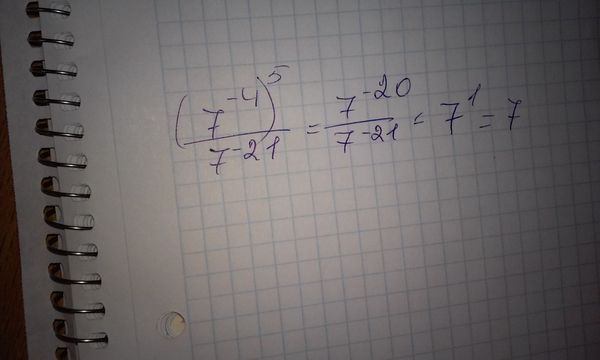 (7^-4)^5 / 7^-21 = 7^-20 / 7^-21 = 7^1 = 7